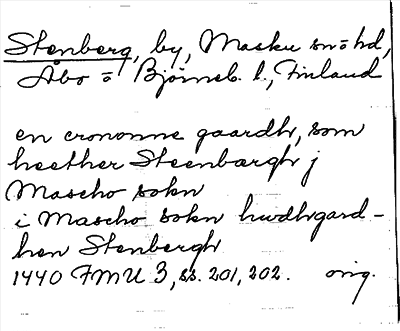 Stenberg, by, Masku sn o hd,
Åbo o Björneb. l., Finland
en cronone gaardh, som
heether Steenbærgh j
Mascho sokn
i Mascho sokn hwdhgard-
hen Stenbergh
1440 FMU 3, ss. 201, 202. orig.